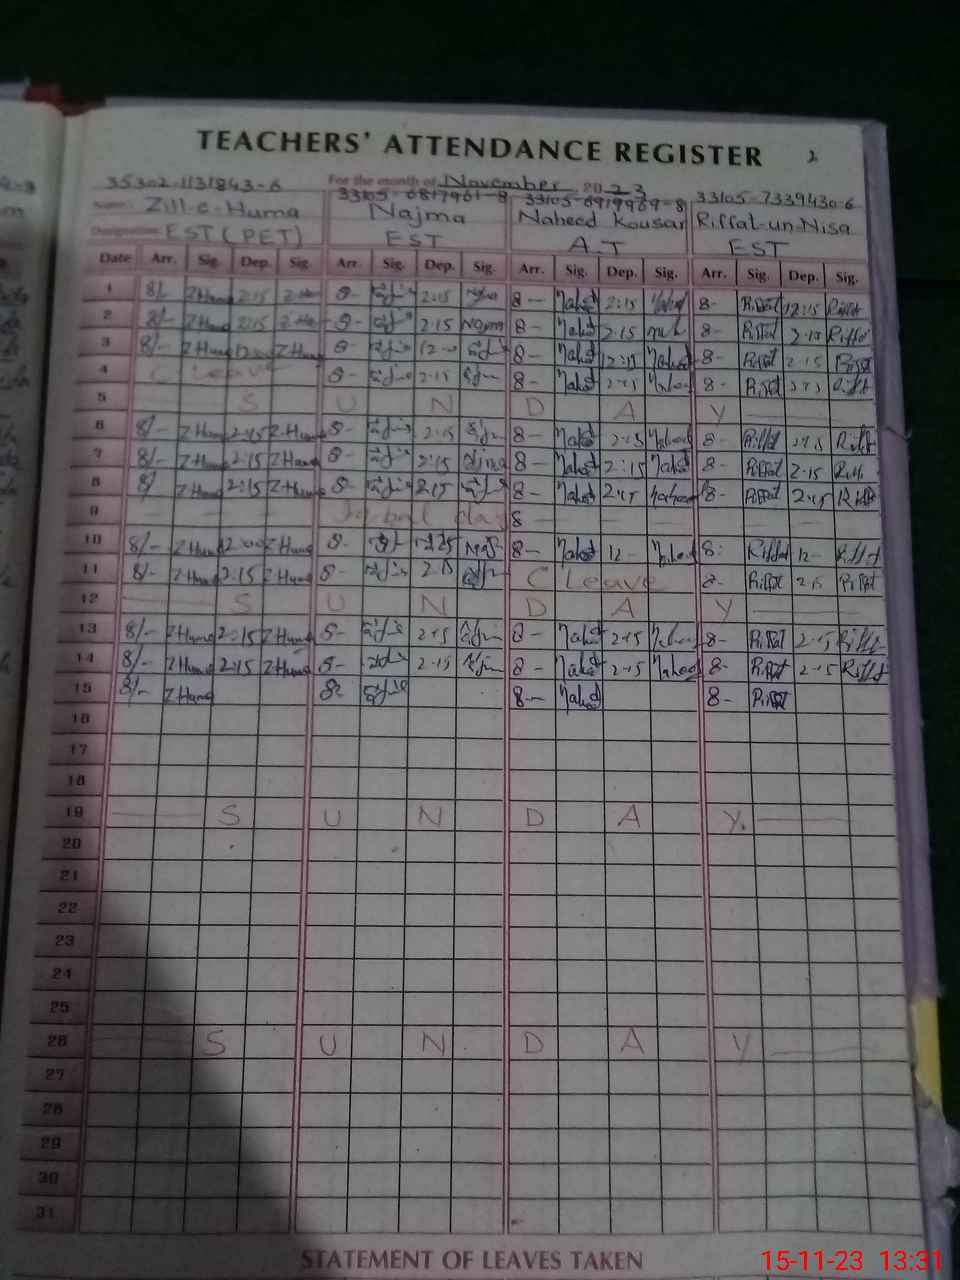 TEACHERS' ATTENDANCE REGISTER 2
35302-1131843-6 For the month of November 2023
33105-6817961-8 33105-6919969-8 33105-7339430-6
Name: Zill-e-Huma Najma Naheed Kousar Riffat-un-Nisa
Designation: EST (PET) EST A.T EST
Date Arr. Sig. Dep. Sig. Arr. Sig. Dep. Sig. Arr. Sig. Dep. Sig. Arr. Sig. Dep. Sig.
1 8/- ZHuma 2:15 8- 2:15 8- Nahed 2:15 Nahed 8- Riffat 12:15 Riffat
2 8/- ZHuma 2:15 8- 2:15 Najm 8- Nahed 2:15 8- Riffat 2:15 Riffat
3 8/- ZHuma 12:00 ZHuma 8- 12- 8- Nahed Nahed 8- Riffat 2:15 Riffat
4 C Leave 8- 2:15 8- Nahed 2:15 Nahed 8- Riffat Riffat
5 S U N D A Y
6 8/- ZHuma 2:15 ZHuma 8- 2:15 8- Nahed 2:15 Nahed 8- Riffat 2:15 Riffat
7 8/- ZHuma 2:15 ZHuma 8- 2:15 8- Nahed 2:15 Nahed 8- Riffat 2:15 Riffat
8 8/ ZHuma 2:15 ZHuma 8- 2:15 8- Nahed 2:15 8- Riffat 2:15 Riffat
9 Iqbal day 8
10 8/- ZHuma 12:00 ZHuma 8- 8- Nahed 12- Nahed 8: Riffat 12- Riffat
11 8/- ZHuma 2:15 ZHuma 8- C Leave 8- Riffat 2:15 Riffat
12 S U N D A Y
13 8/- ZHuma 2:15 ZHuma 8- 2:15 8- Nahed 2:15 8- Riffat 2:15 Riffat
14 8/- ZHuma 2:15 ZHuma 8- 2:15 8- Nahed 2:15 Nahed 8- Riffat 2:15 Riffat
15 8/- ZHuma 8- Nahed 8- Riffat
16
17
18
19 S U N D A Y.
20
21
22
23
24
25
26 S U N D A Y
27
28
29
30
31
STATEMENT OF LEAVES TAKEN
15-11-23 13:31